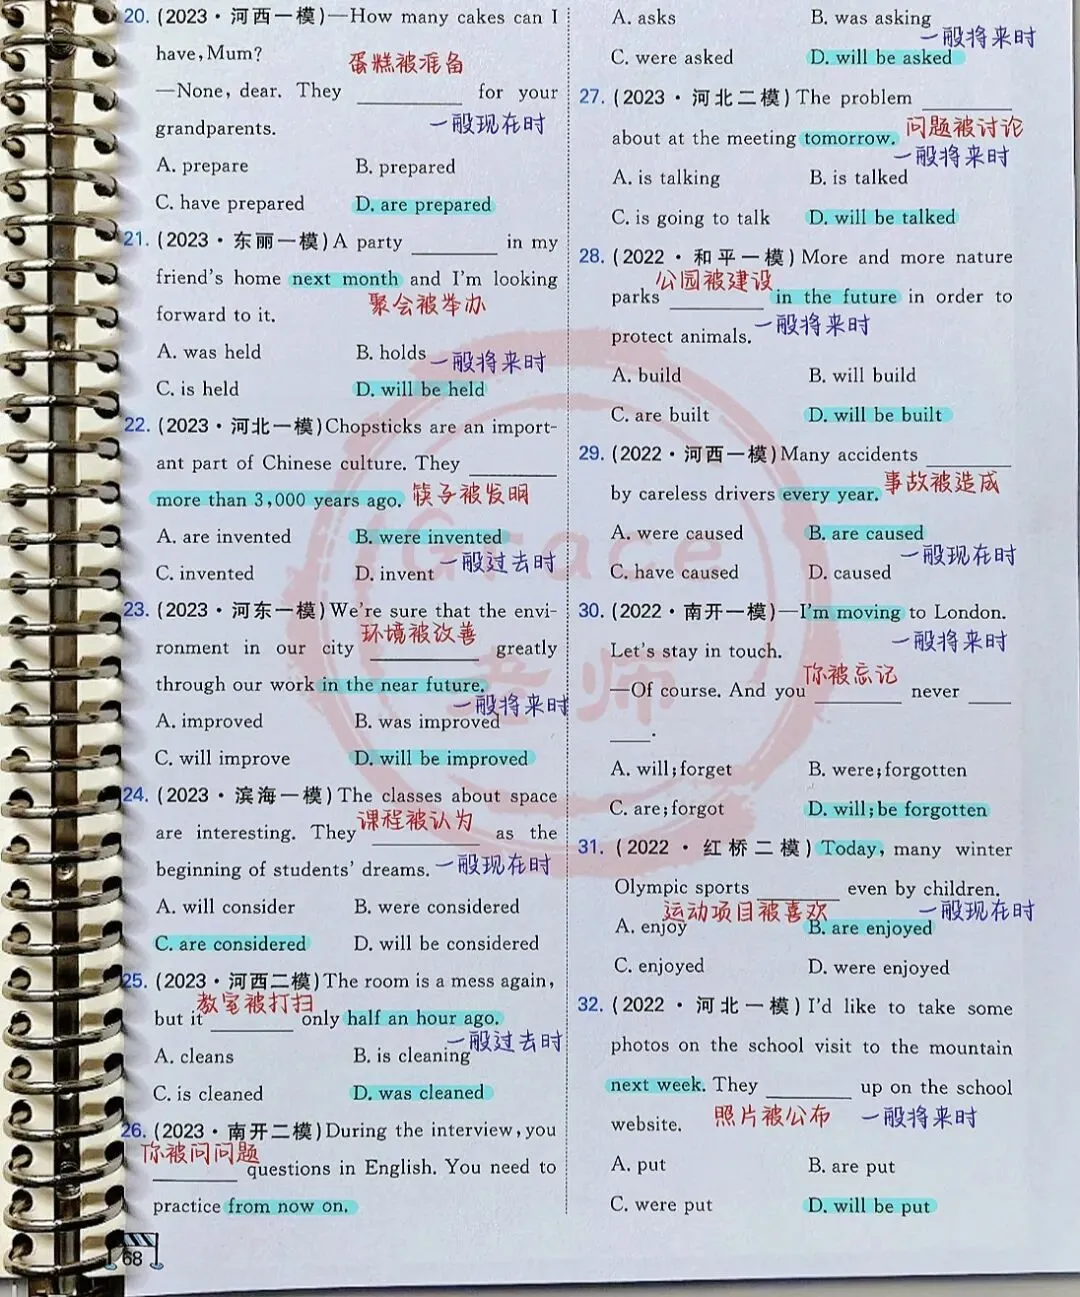 20. (2023·河西一模)—How many cakes can I
have, Mum?
蛋糕被准备
—None, dear. They ________ for your
grandparents.
一般现在时
A. prepare B. prepared
C. have prepared D. are prepared
21. (2023·东丽一模)A party ________ in my
friend's home next month and I'm looking
forward to it.
聚会被举办
A. was held B. holds
一般将来时
C. is held D. will be held
22. (2023·河北一模)Chopsticks are an import-
ant part of Chinese culture. They ________
more than 3,000 years ago.
筷子被发明
A. are invented B. were invented
C. invented D. invent
一般过去时
23. (2023·河东一模)We're sure that the envi-
环境被改善
ronment in our city ________ greatly
through our work in the near future.
一般将来时
A. improved B. was improved
C. will improve D. will be improved
24. (2023·滨海一模)The classes about space
课程被认为
are interesting. They ________ as the
beginning of students' dreams.
一般现在时
A. will consider B. were considered
C. are considered D. will be considered
25. (2023·河西二模)The room is a mess again,
教室被打扫
but it ________ only half an hour ago.
一般过去时
A. cleans B. is cleaning
C. is cleaned D. was cleaned
26. (2023·南开二模)During the interview, you
你被问问题
________ questions in English. You need to
practice from now on.
68
A. asks B. was asking
一般将来时
C. were asked D. will be asked
27. (2023·河北二模)The problem ________
about at the meeting tomorrow.
问题被讨论
一般将来时
A. is talking B. is talked
C. is going to talk D. will be talked
28. (2022·和平一模)More and more nature
公园被建设
parks ________ in the future in order to
protect animals.
一般将来时
A. build B. will build
C. are built D. will be built
29. (2022·河西一模)Many accidents ________
by careless drivers every year.
事故被造成
A. were caused B. are caused
一般现在时
C. have caused D. caused
30. (2022·南开一模)—I'm moving to London.
Let's stay in touch.
一般将来时
你被忘记
—Of course. And you ________ never ____
____.
A. will;forget B. were;forgotten
C. are;forgot D. will;be forgotten
31. (2022·红桥二模)Today, many winter
Olympic sports ________ even by children.
运动项目被喜欢
一般现在时
A. enjoy B. are enjoyed
C. enjoyed D. were enjoyed
32. (2022·河北一模)I'd like to take some
photos on the school visit to the mountain
next week. They ________ up on the school
website.
照片被公布
一般将来时
A. put B. are put
C. were put D. will be put
Grace
老师